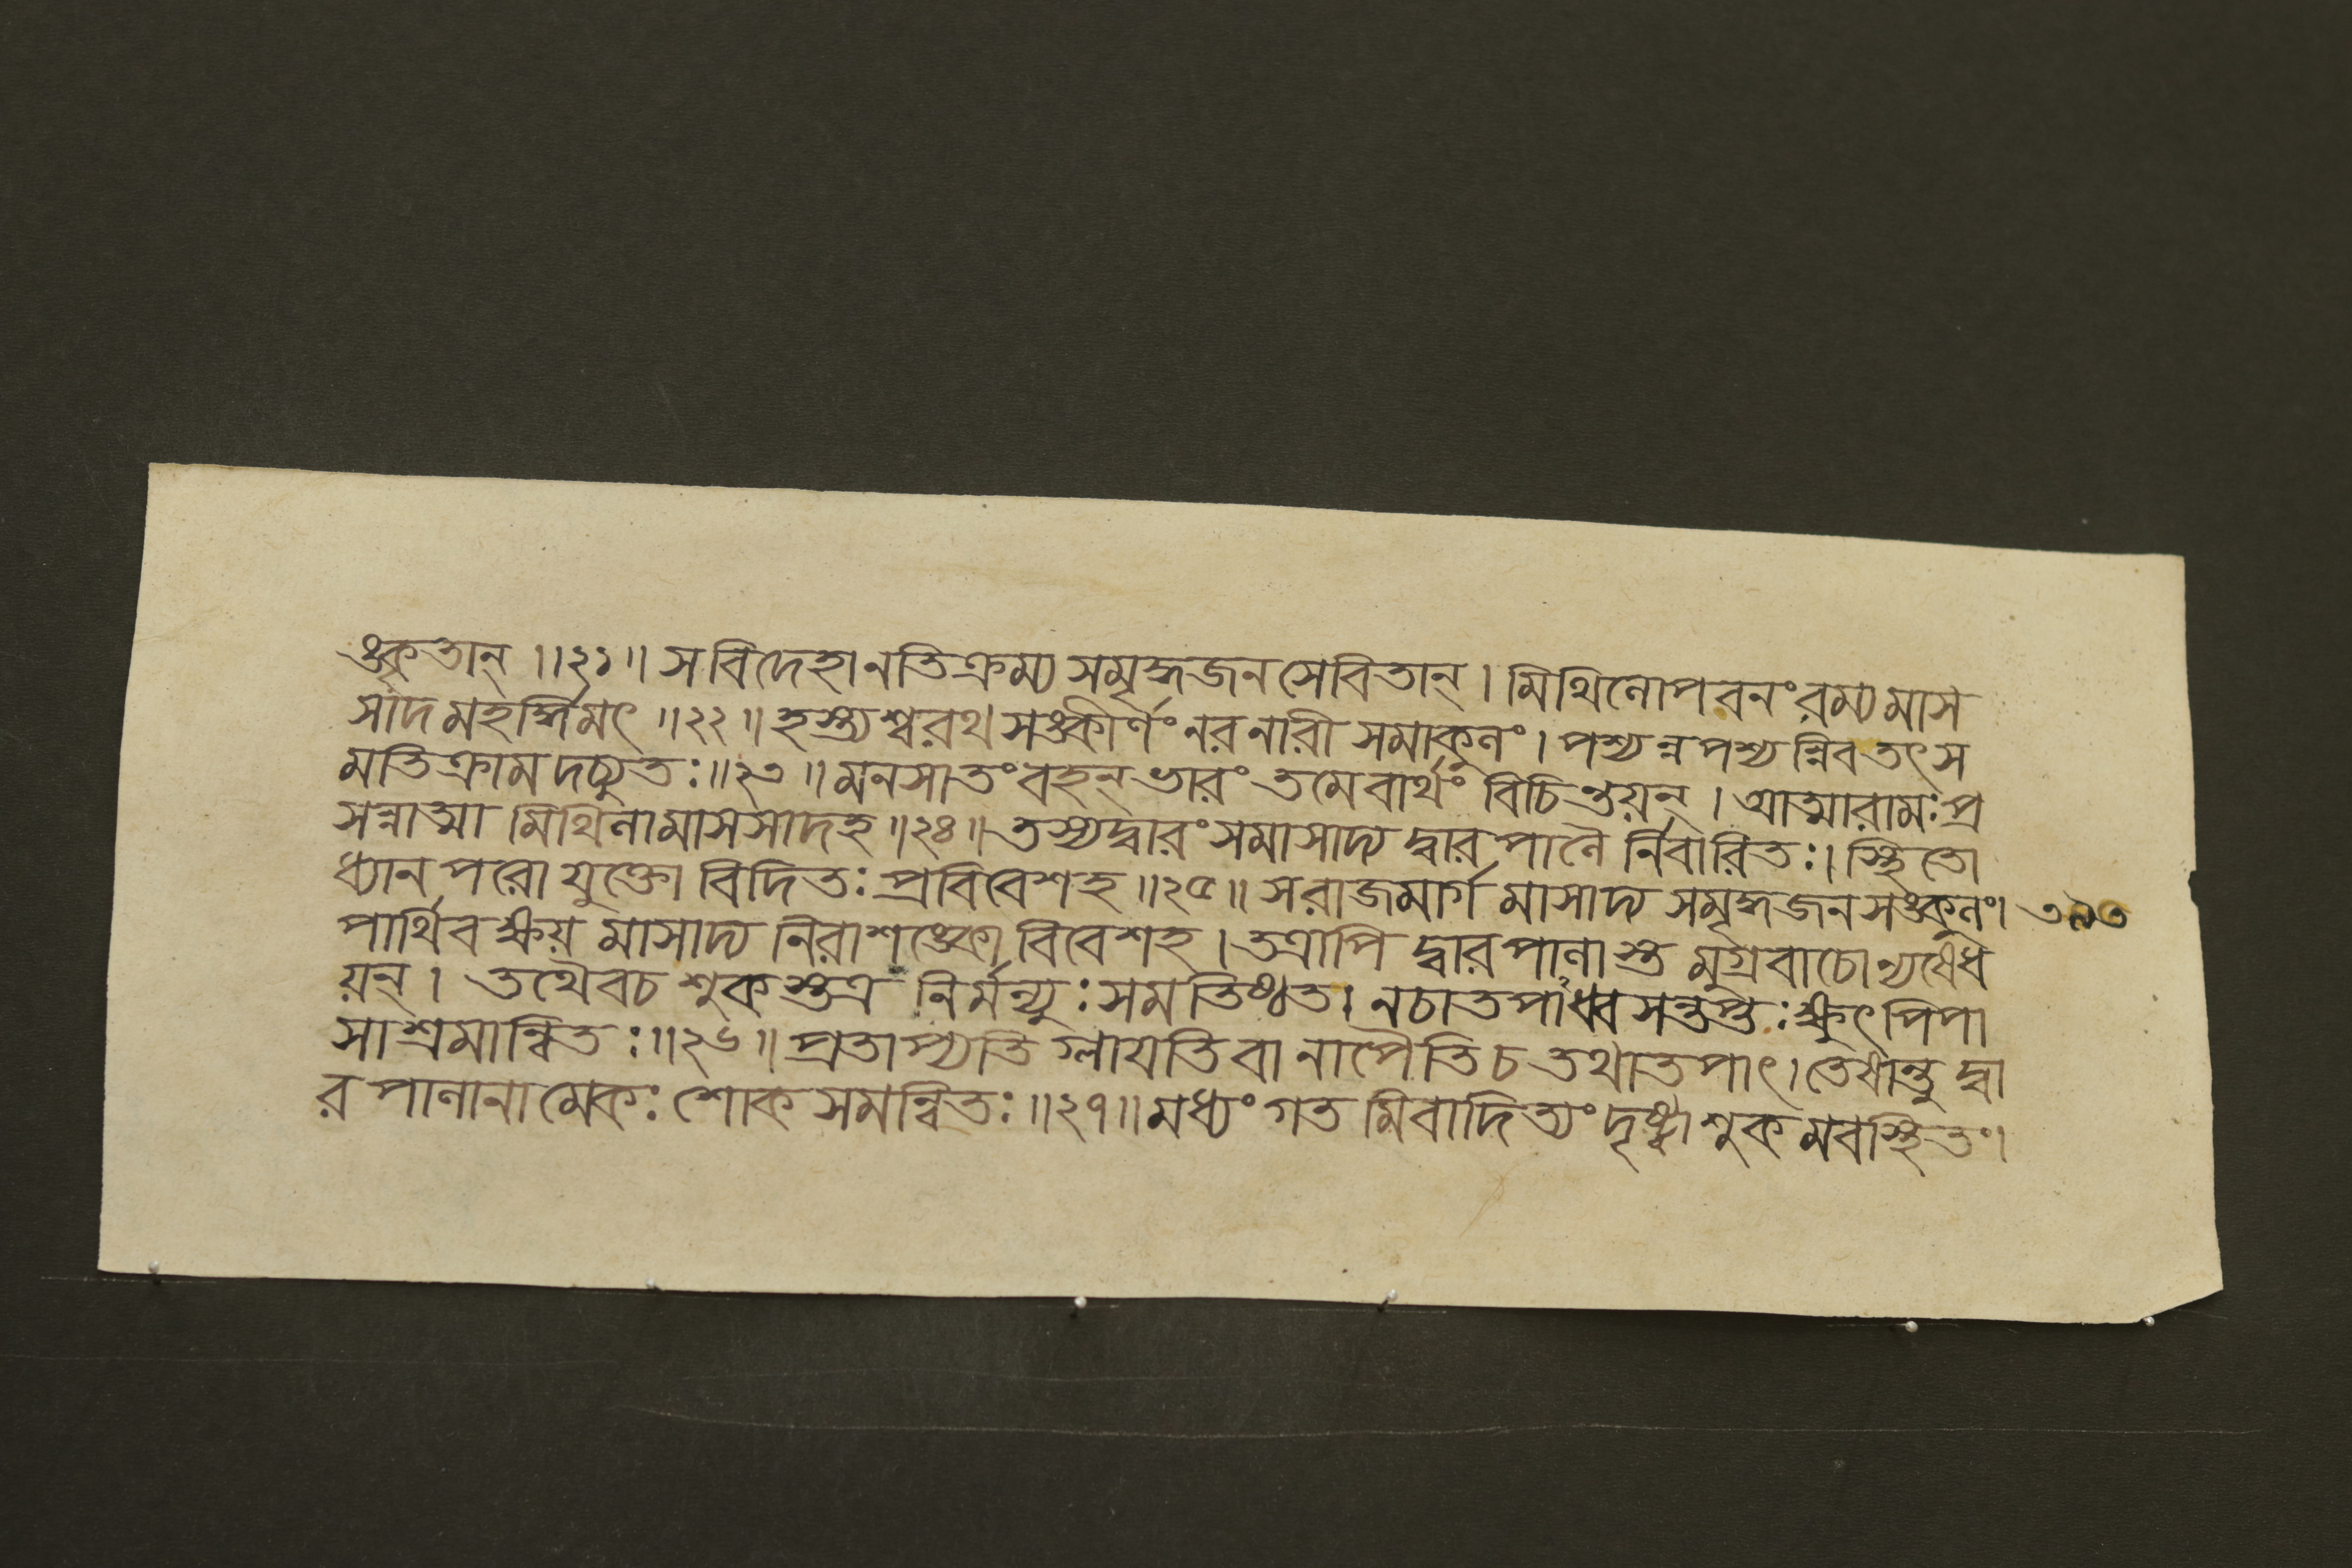 ঙ্কৃতান্ ॥২১॥ স বিদেহানতিক্রম্য সমৃদ্ধজনসেবিতান্ । মিথিলোপবনং রম্যমাস
সাদ মহর্দ্ধিমৎ ॥২২॥ হস্ত্যশ্বরথসঙ্কীর্ণং নরনারী সমাকুলং । পশ্যন্নপশ্যন্নিব তৎ স
মতিক্রামদচ্যুতঃ ॥২৩॥ মনসা তং বহন্ ভারং তমেবার্থং বিচিন্তয়ন্ । আত্মারামঃ প্র
সন্নাত্মা মিথিলামাসসাদ হ ॥২৪॥ তস্যদ্বারং সমাসাদ্য দ্বারপালৈ র্নিবারিতঃ । স্থিতো
ধ্যানপরো যুক্তো বিদিতঃ প্রবিবেশ হ ॥২৫॥ স রাজমার্গমাসাদ্য সমৃদ্ধজনসঙ্কুলং । ৩৯৩
পার্থিবক্ষয়মাসাদ্য নিরাশঙ্কো বিবেশ হ । তত্রাপি দ্বারপালাস্ত মুগ্রবাচোন্যষেধ
য়ন্ । তথৈবচ শুকস্তত্র নির্মন্যুঃ সমতিষ্ঠত । নচাতপাধ্বসন্তপ্তঃ ক্ষুৎপিপা
সাশ্রমান্বিতঃ ॥২৬॥ প্রতাপ্যতি গ্লায়তি বা নাপৈতি চ তথাতপাৎ । তেষান্তু দ্বা
রপালানামেকঃ শোকসমন্বিতঃ ॥২৭॥ মধ্যং গতমিবাদিত্যং দৃষ্ট্বা শুকমবস্থিতং ।